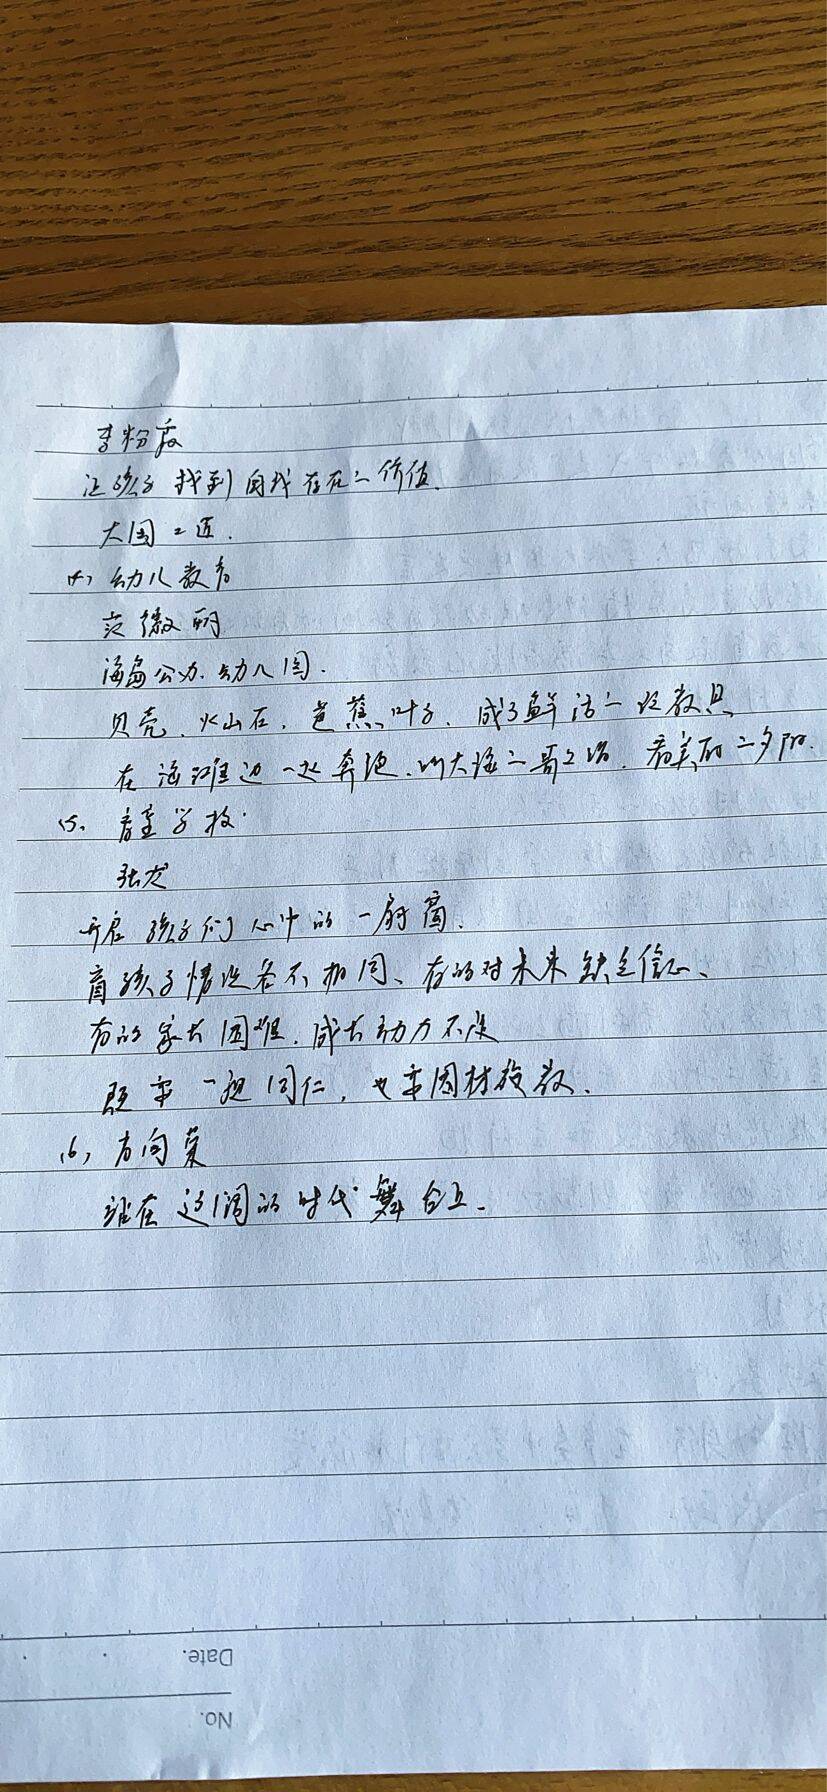 李粉霞
让孩子找到自我存在的价值.
大国工匠.
(4) 幼儿教育
范微丽
海岛公办幼儿园.
贝壳、火山石、芭蕉叶子、成了鲜活的教具
在海滩边一起奔跑、听大海的歌唱、看美丽的夕阳.
(5. 盲童学校.
张龙
开启孩子们心中的一扇窗、
盲孩子情况各不相同、有的对未来缺乏信心、
有的家长困难、成长动力不足
既要一视同仁，也要因材施教、
(6) 方向
站在辽阔的时代舞台上.
Date.
No.